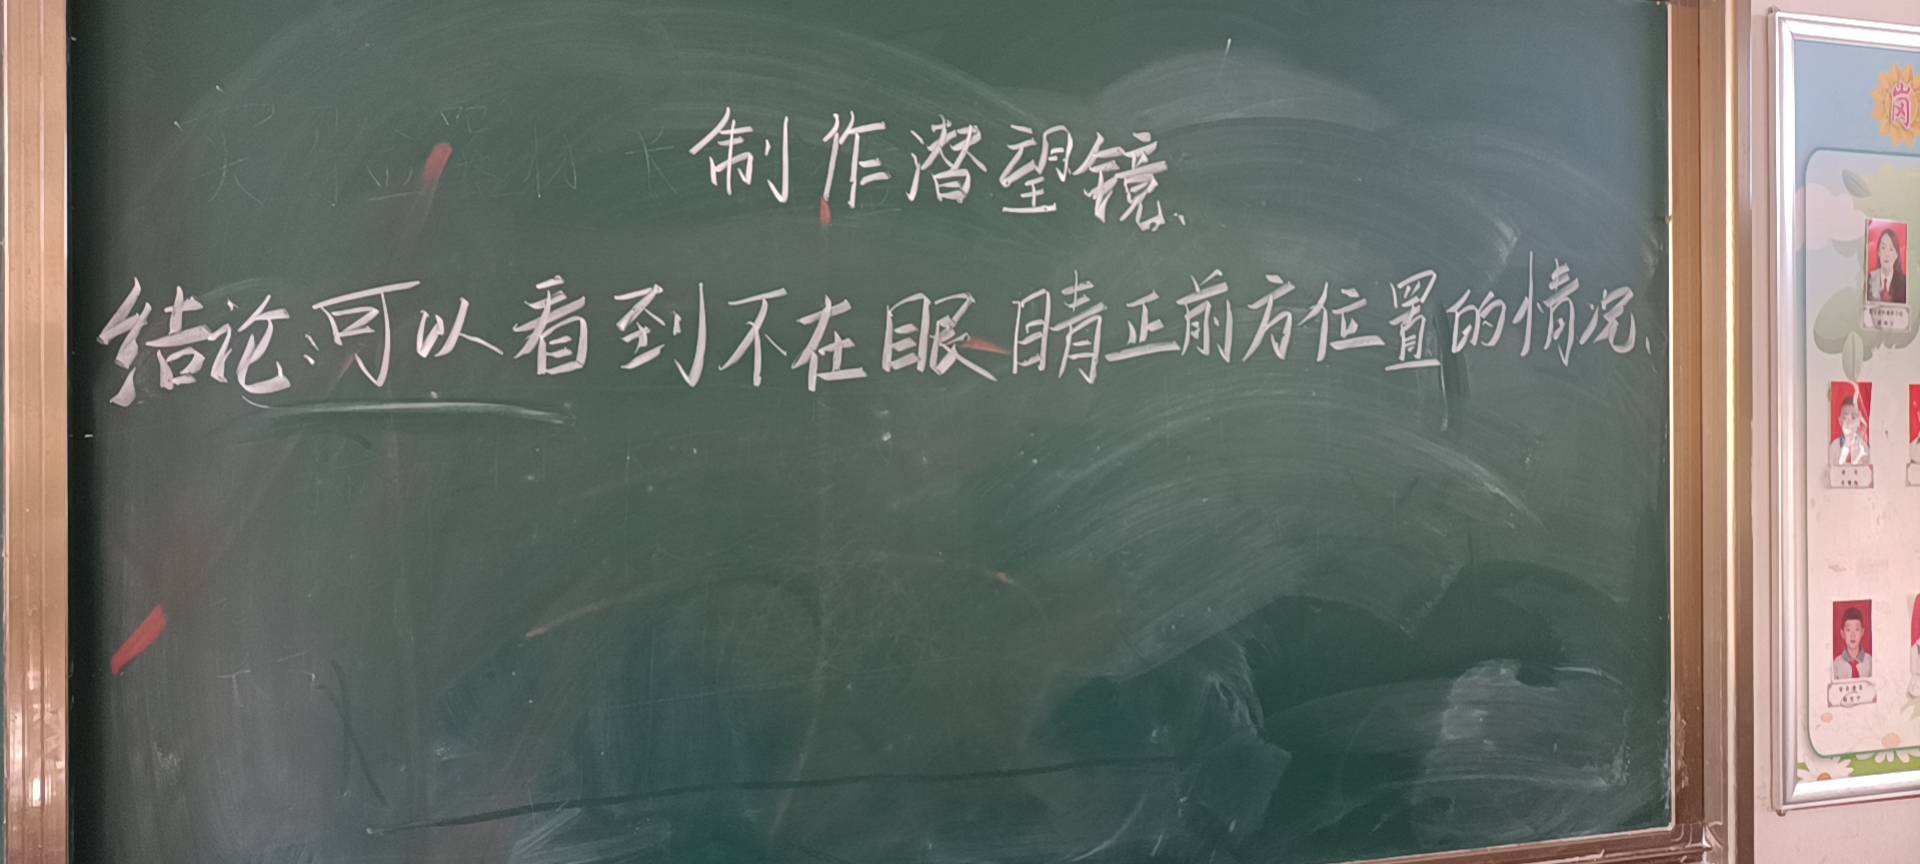 制作潜望镜、
结论:可以看到不在眼睛正前方位置的情况、
岗